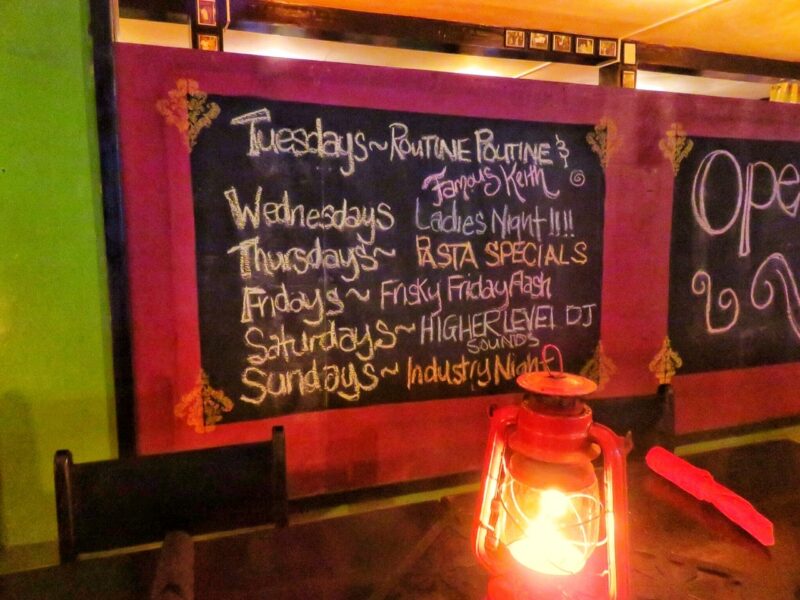 Tuesdays~ Routine Poutine &
Famous Keith
Wednesdays Ladies Night !!!!
Thursdays~ PASTA SPECIALS
Fridays~ Frisky Friday Flash
Saturdays~ HIGHER LEVEL DJ
SOUNDS
Sundays~ Industry Night
Ope